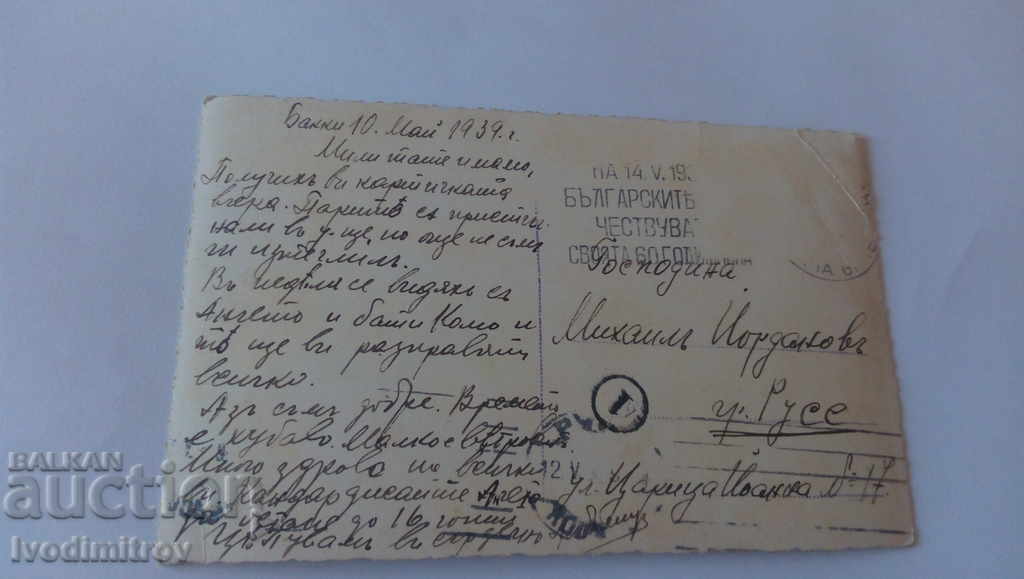 Банки 10. Май 1939 г.
Мили тате и мамо,
Получихъ ви картичката
вчера. Паритѣ сѫ пристиг-
нали въ у-ще, но още не съм
ги изтеглилъ.
Въ неделя се видяхъ съ
Ангето и бати Комо и
тѣ ще ви разправятъ
всичко.
Азъ съмъ добре. Времето
е хубаво. Малко е ветровит
Много здраве на всички
дисайте Анета
до 16 того
Цѣлувамъ ви сърдечно
НА 14.V.193
БЪЛГАРСКИТѢ
ЧЕСТВУВАТ
СВОЯТА 60 ГОДИШНИНА
Господина
Михаилъ Йордановъ
гр. Русе
ул. Царица Иоанна № 17
1
12 V
BALKAN
auction
Ivodimitrov